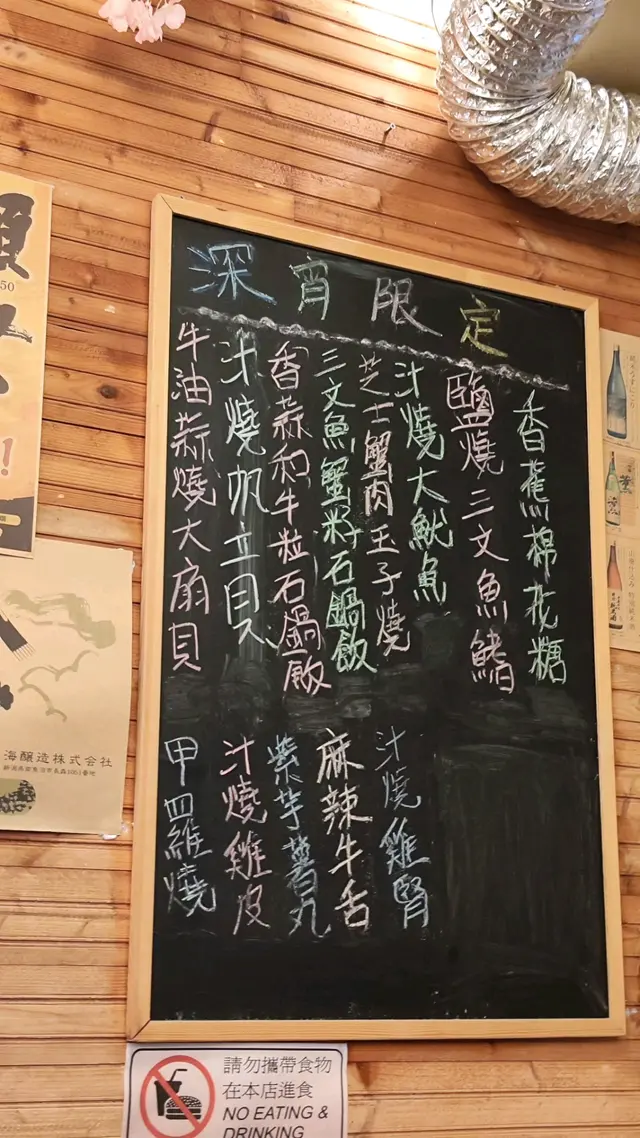 深宵限定
香蕉棉花糖
鹽燒三文魚鰭
汁燒大魷魚
芝士蟹肉玉子燒
三文魚蟹籽石鍋飯
香蒜和牛粒石鍋飯
汁燒帆立貝
牛油蒜燒大扇貝
汁燒雞腎
麻辣牛舌
紫芋薯丸
汁燒雞皮
甲四維燒
海醸造株式会社
請勿攜帶食物
在本店進食
NO EATING &
DRINKING